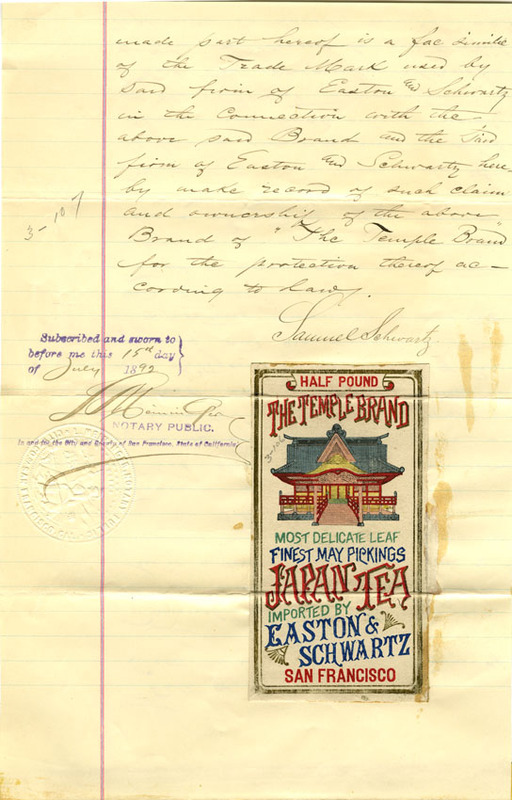 made part hereof is a fac simile
of the Trade Mark used by
said firm of Easton and Schwartz
in the connection with the
above said Brand and the said
firm of Easton and Schwartz here-
by make record of such claim
and ownership of the above
Brand of "The Temple Brand"
for the protection thereof ac-
cording to Law.
3-107
Samuel Schwartz
Subscribed and sworn to
before me this 15th day
of July 1892
NOTARY PUBLIC.
In and for the City and County of San Francisco, State of California
HALF POUND
THE TEMPLE BRAND
MOST DELICATE LEAF
FINEST MAY PICKINGS
JAPAN TEA
IMPORTED BY
EASTON &
SCHWARTZ
SAN FRANCISCO